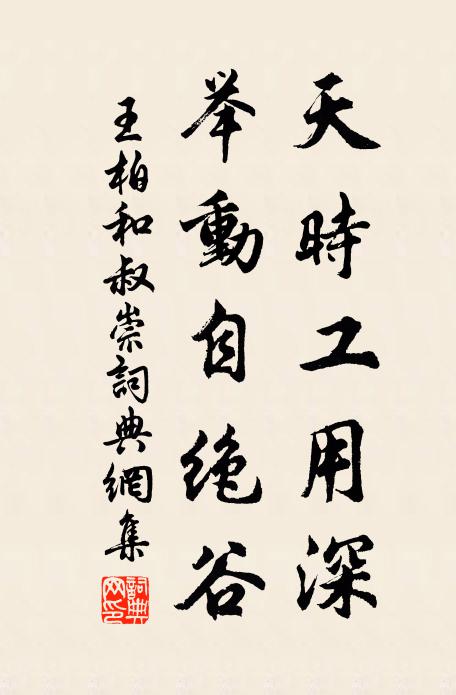 天時工用深
举動自絶谷
王柏和叔崇詞典網集
詞典網印